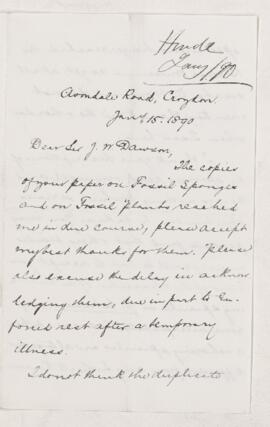 Hinde
Jany/90
Avondale Road, Croydon.
Jany 15. 1890
Dear Sir J. W Dawson,
The copies
of your paper on Fossil Sponges
and on Fossil Plants reached
me in due course, please accept
my best thanks for them. Please
also excuse the delay in acknow
ledging them, due in part to En-
forced rest after a temporary
illness.
I do not think the duplicate